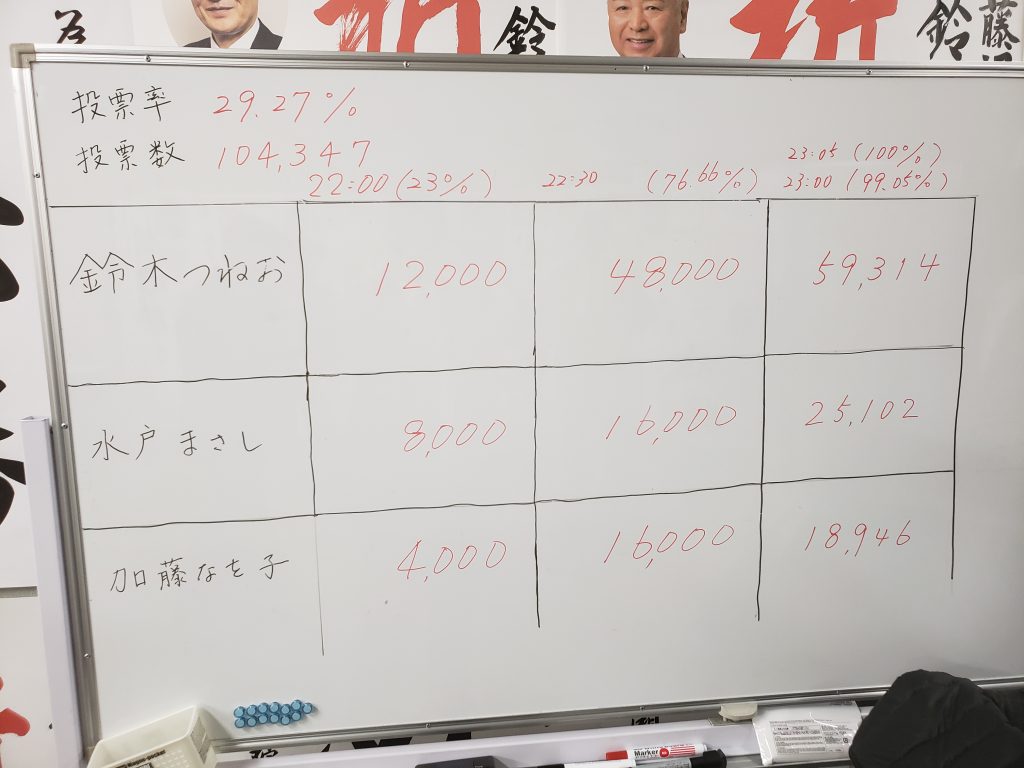 為
鈴
鈴
藤
投票率 29.27%
投票数 104,347
23:05 (100%)
22:00 (23%) 22:30 (76.66%) 23:00 (99.05%)
鈴木つねお 12,000 48,000 59,314
水戸まさし 8,000 16,000 25,102
加藤なを子 4,000 16,000 18,946
Marker